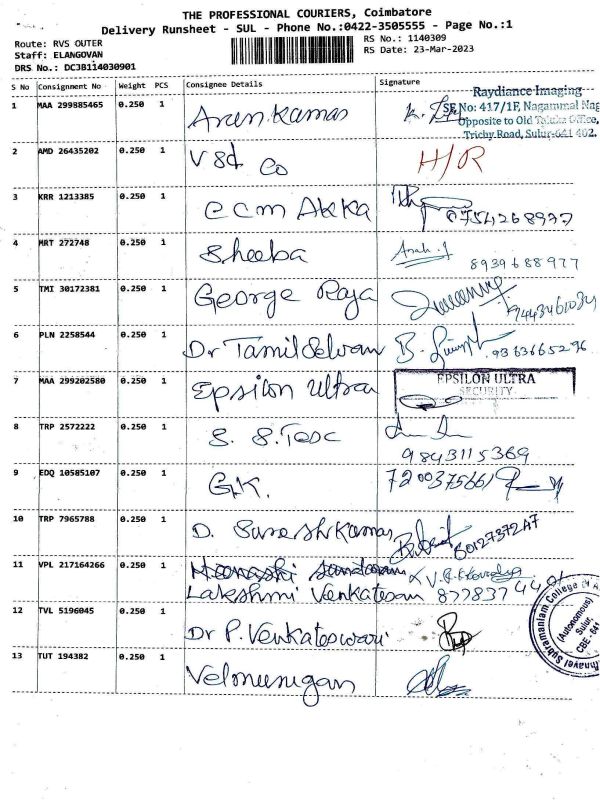 THE PROFESSIONAL COURIERS, Coimbatore
Delivery Runsheet - SUL - Phone No.:0422-3505555 - Page No.:1
Route: RVS OUTER
RS No.: 1140309
Staff: ELANGOVAN
RS Date: 23-Mar-2023
DRS No.: DCJB114030901
S No Consignment No Weight PCS Consignee Details Signature
1 MAA 299885465 0.250 1 Arun Kumar
Raydiance Imaging
SF.No: 417/1F, Nagammal Nag
Opposite to Old Taluka Office,
Trichy Road, Sulur-641 402.
2 AMD 26435202 0.250 1 V Sd Co H/R
3 KRR 1213385 0.250 1 CCM Akka 8754268977
4 MRT 272748 0.250 1 Sheeba 8939688977
5 TMI 30172381 0.250 1 George Raja
6 PLN 2258544 0.250 1 Dr Tamil Selvan 9363665296
7 MAA 299202580 0.250 1 Epsilon Ultra EPSILON ULTRA
SECURITY
8 TRP 2572222 0.250 1 S. S. Tesc 9843115369
9 EDQ 10585107 0.250 1 G.K. 7200375661
10 TRP 7965788 0.250 1 D. Suresh Kumar
11 VPL 217164266 0.250 1
Lakshmi Venkatesan
12 TVL 5196045 0.250 1 Dr P. Venkateswari
13 TUT 194382 0.250 1 Velmurugan
(Autonomous)
Sulur,
CBE - 641